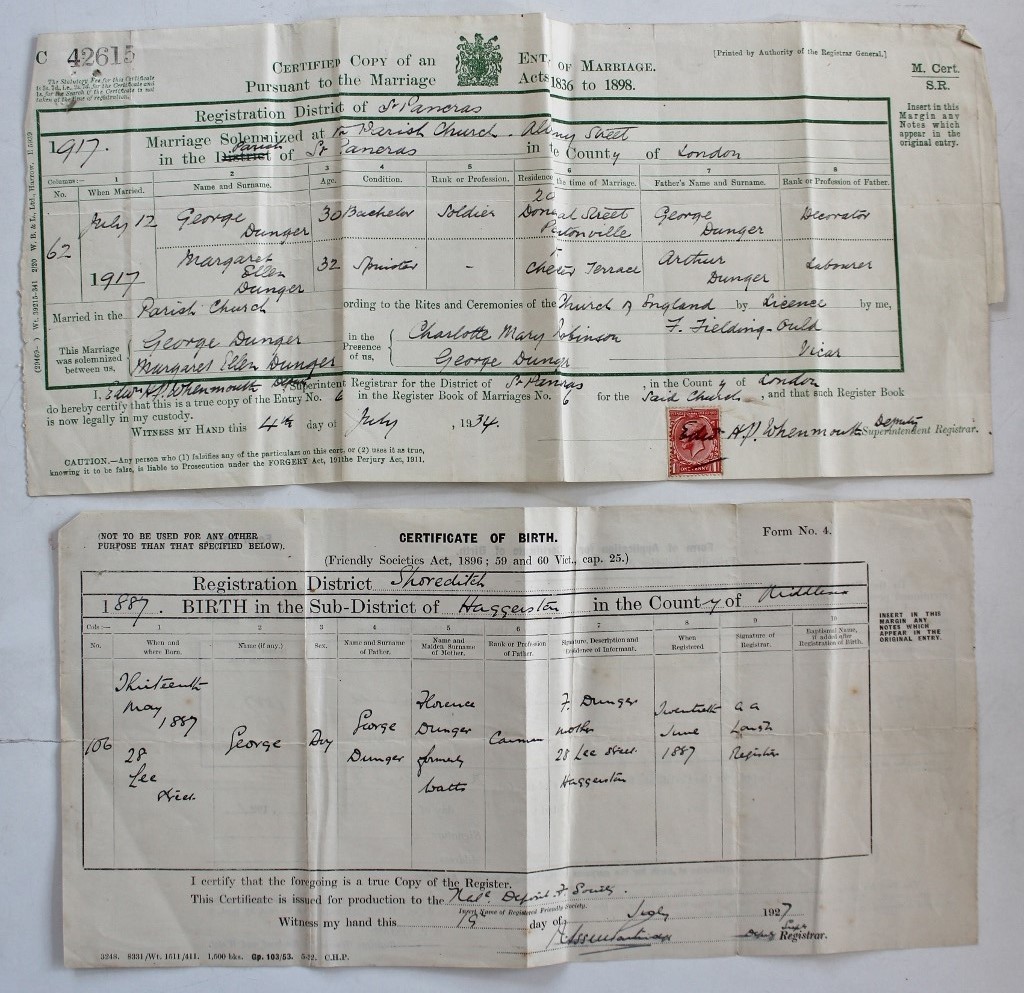 C 42615
CERTIFIED COPY of an ENT OF MARRIAGE.
Pursuant to the Marriage Acts 1836 to 1898.
[Printed by Authority of the Registrar General.]
M. Cert.
S.R.
The Statutory Fee for this Certificate
Insert in this
Margin any
Notes which
appear in the
original entry.
Registration District of St Pancras
1917. Marriage Solemnized at Parish Church Albany Street
in the District Parish of St Pancras in the County of London
Columns:— 1 2 3 4 5 6 7 8
No. When Married. Name and Surname. Age. Condition. Rank or Profession. Residence the time of Marriage. Father's Name and Surname. Rank or Profession of Father.
62
July 12 1917
George Dunger 30 Bachelor Soldier Street George Dunger Decorator
Margaret Ellen Dunger 32 Spinster - Chester Terrace Arthur Dunger Labourer
Married in the Parish Church ording to the Rites and Ceremonies of the Church of England by Licence by me,
This Marriage was solemnized between us,
George Dunger
Margaret Ellen Dunger
in the Presence of us,
Charlotte Mary Robinson
George Dunger
F. Fielding-Ould
Vicar
I, H.J. Whenmouth Deputy Superintendent Registrar for the District of St Pancras, in the County of London
do hereby certify that this is a true copy of the Entry No. in the Register Book of Marriages No. 6 for the Said Church, and that such Register Book
is now legally in my custody.
WITNESS MY HAND this 4th day of July, 1934.
H.J. Whenmouth Deputy Superintendent Registrar.
ONE PENNY
CAUTION.—Any person who (1) falsifies any of the particulars on this cert. or (2) uses it as true,
knowing it to be false, is liable to Prosecution under the FORGERY Act, 191 the Perjury Act, 1911.
(NOT TO BE USED FOR ANY OTHER
PURPOSE THAN THAT SPECIFIED BELOW).
CERTIFICATE OF BIRTH.
Form No. 4.
(Friendly Societies Act, 1896; 59 and 60 Vict., cap. 25.)
Registration District Shoreditch
1887. BIRTH in the Sub-District of Haggerston in the County of
INSERT IN THIS
MARGIN ANY
NOTES WHICH
APPEAR IN THE
ORIGINAL ENTRY.
Cols:— 1 2 3 4 5 6 7 8 9 10
No. When and where Born. Name (if any). Sex. Name and Surname of Father. Name and Maiden Surname of Mother. Rank or Profession of Father. Signature, Description and Residence of Informant. When Registered Signature of Registrar. Baptismal Name, if added after Registration of Birth.
106
Thirteenth May 1887 28 Lee Street
George
Boy
George Dunger
Florence Dunger formerly Watts
Carman
F. Dunger mother 28 Lee Street Haggerston
Twentieth June 1887
Registrar
I certify that the foregoing is a true Copy of the Register.
This Certificate is issued for production to the Deposit F. Society.
Insert Name of Registered Friendly Society.
Witness my hand this day of July 1927
Registrar.
3248. 8331/Wt. 1511/411. 1,500 bks. Gp. 103/53. C.H.P.